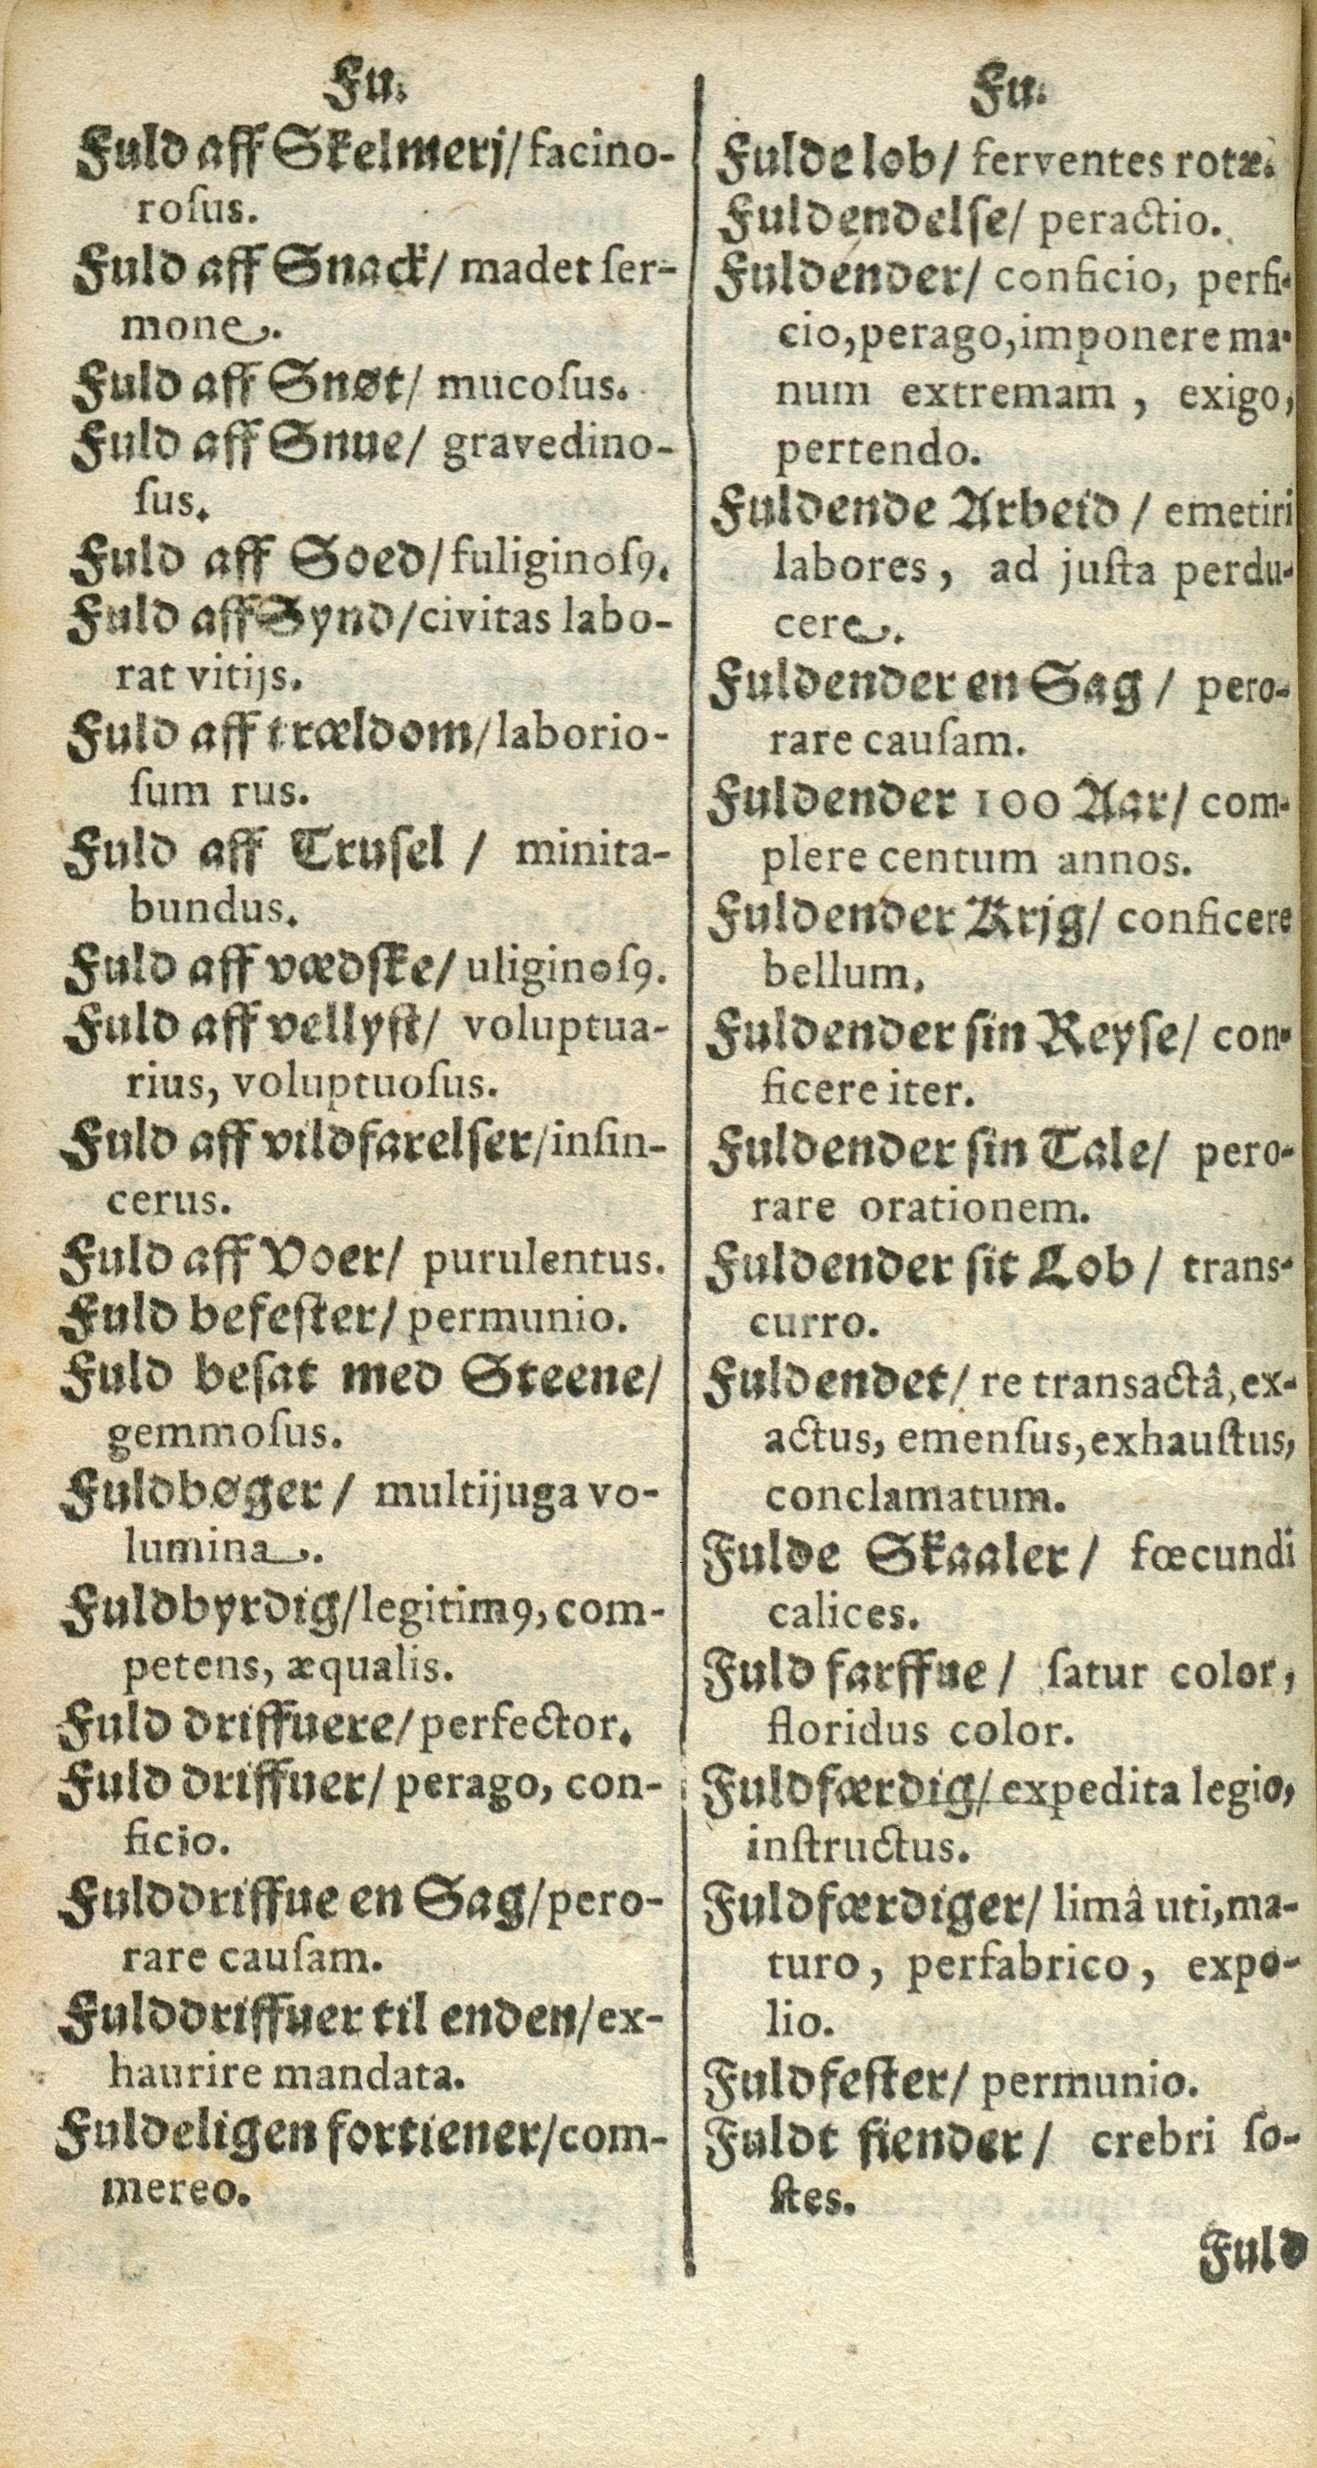 Fu.
Fuld aff Skelmerj/ facino-
roſus.
Fuld aff Snack/ madet ſer-
mone.
Fuld aff Snøt/ mucoſus.
Fuld aff Snue/ gravedino-
ſus.
Fuld aff Soed/ fuliginoſꝰ.
Fuld aff Synd/ civitas labo-
rat vitijs.
Fuld aff trældom/ laborio-
ſum rus.
Fuld aff Truſel / minita-
bundus.
Fuld aff vædſke/ uliginoſꝰ.
Fuld aff vellyſt/ voluptua-
rius, voluptuoſus.
Fuld aff vildfarelſer/ inſin-
cerus.
Fuld aff Voer/ purulentus.
Fuld befeſter/ permunio.
Fuld beſat med Steene/
gemmoſus.
Fuldbøger / multijuga vo-
lumina.
Fuldbyrdig/ legitimꝰ, com-
petens, æqualis.
Fuld driffuere/ perfector.
Fuld driffuer/ perago, con-
ficio.
Fulddriffue en Sag/ pero-
rare cauſam.
Fulddriffuer til enden/ ex-
haurire mandata.
Fuldeligen fortiener/ com-
mereo.
Fu.
Fulde lob/ ferventes rotæ.
Fuldendelſe/ peractio.
Fuldender/ conficio, perfi-
cio, perago, imponere ma-
num extremam , exigo,
pertendo.
Fuldende Arbeid / emetiri
labores, ad juſta perdu-
cere.
Fuldender en Sag / pero-
rare cauſam.
Fuldender 100 Aar/ com-
plere centum annos.
Fuldender Krjg/ conficere
bellum.
Fuldender ſin Reyſe/ con-
ficere iter.
Fuldender ſin Tale/ pero-
rare orationem.
Fuldender ſit Lob / trans-
curro.
Fuldendet/ re transactâ, ex-
actus, emenſus, exhauſtus,
conclamatum.
Fulde Skaaler / fœcundi
calices.
Fuld farffue / ſatur color,
floridus color.
Fuldfærdig/ expedita legio,
inſtructus.
Fuldfærdiger/ limâ uti, ma-
turo, perfabrico, expo-
lio.
Fuldfeſter/ permunio.
Fuldt fiender / crebri ſo-
ſtes.
Fuld